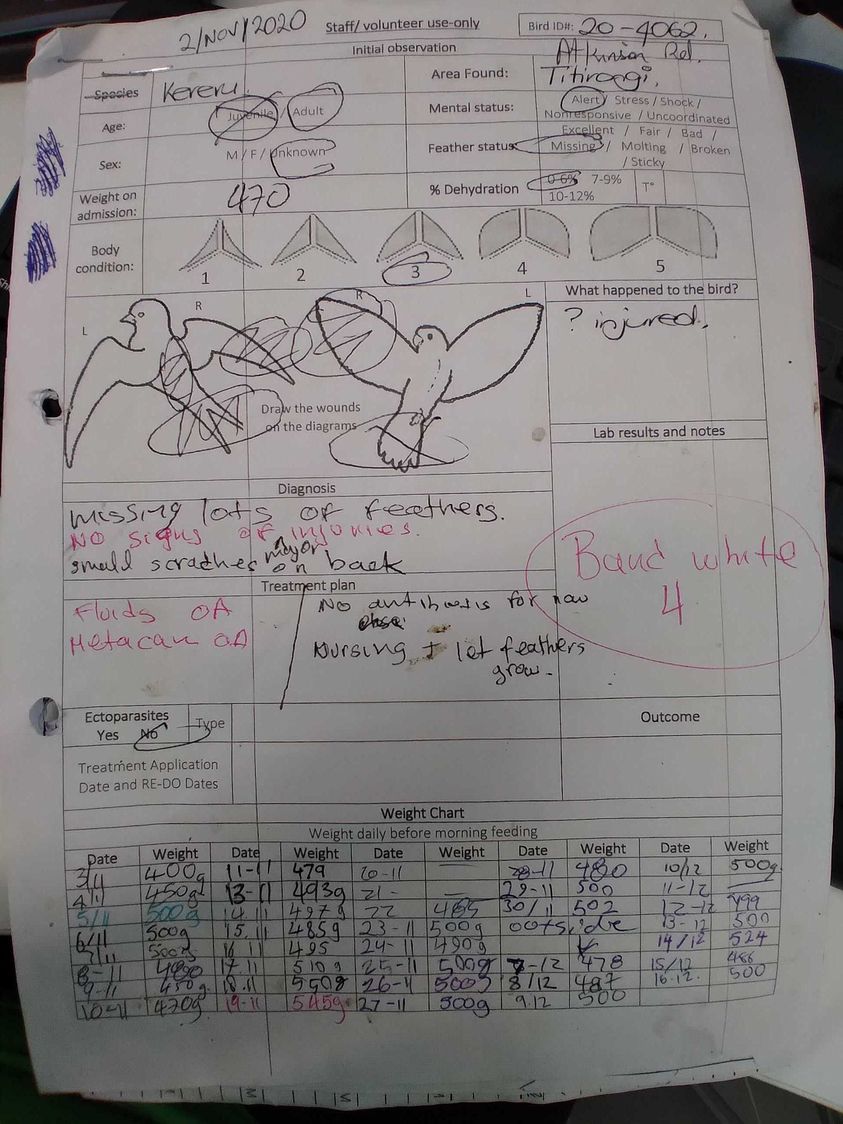 2/NOV/2020 Staff/ volunteer use-only Bird ID#: 20-4062.
Initial observation
Species Kereru Area Found: Atkinson Rd. Titirangi.
Age: Juvenile / Adult Mental status: Alert / Stress / Shock / Nonresponsive / Uncoordinated
Sex: M / F / Unknown Feather status Excellent / Fair / Bad / Missing / Molting / Broken / Sticky
Weight on admission: 470 % Dehydration 0-6% 7-9% 10-12% T°
Body condition: 1 2 3 4 5
What happened to the bird?
? injured.
L R R L
Draw the wounds
on the diagrams
Lab results and notes
Band white
4
Diagnosis
missing lots of feathers.
No signs of major injuries.
small scratches on back
Treatment plan
Fluids OA
Metacam OA
No antibiosis for now
Nursing + let feathers
grow.
Ectoparasites
Yes No Type
Outcome
Treatment Application
Date and RE-DO Dates
Weight Chart
Weight daily before morning feeding
Date Weight Date Weight Date Weight Date Weight Date Weight
3/11 400g 11-11 479 20-11 — 28-11 480 10/12 500g
4/11 450g 13-11 493g 21- — 29-11 500 11-12 —
5/11 500g 14.11 497g 22 485 30/11 502 12-12 499
6/11 500g 15.11 485g 23-11 500g outside 13-12 500
7/11 500g 16.11 495 24-11 490g 14/12 524
8-11 17.11 510g 25-11 500g 7-12 478 15/12 486
9-11 450g 18.11 550g 26-11 500g 8/12 487 16.12. 500
10-11 470g 19-11 545g 27-11 500g 9.12 500